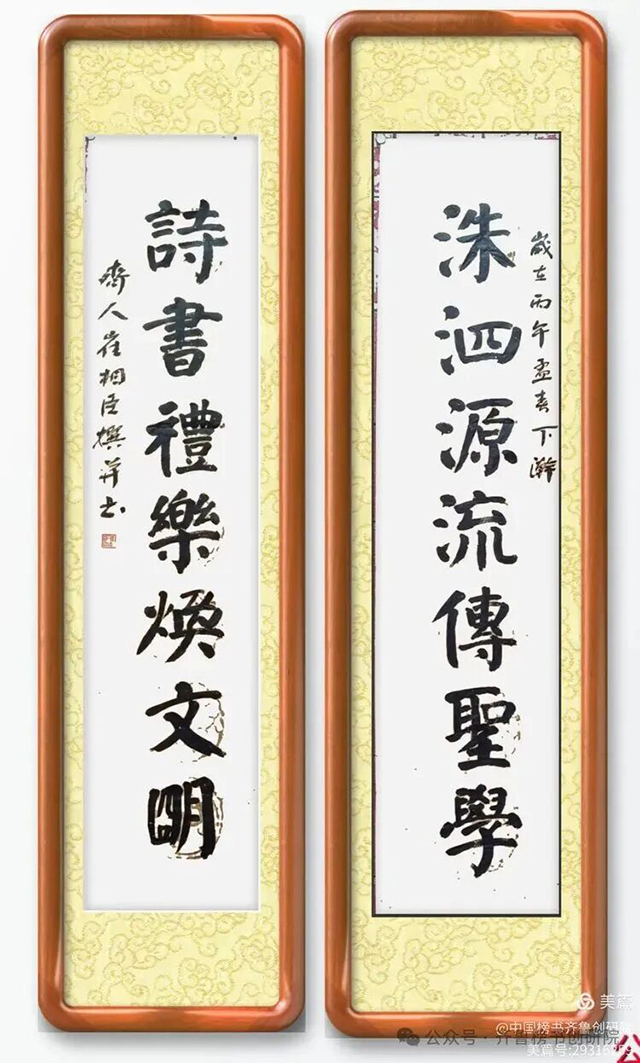 洙泗源流傳聖學
歲在丙午孟春下澣
詩書禮樂煥文明
齊人崔相臣撰并書
美篇
@中国榜书齐鲁创研院
公众号·齐鲁榜书创研院